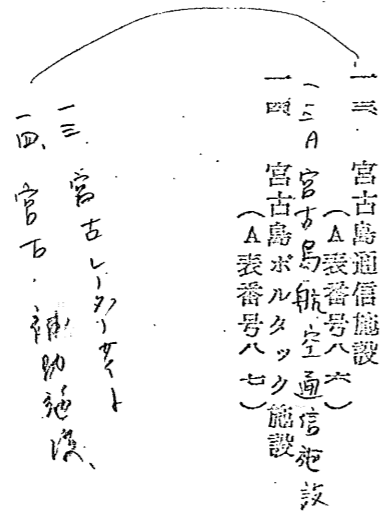 一三 宮古島通信施設
(A表番号八六)
一三A 宮古島航空通信施設
一四 宮古島ボルタック施設
(A表番号八七)
一三、宮古レーダーサイト
一四、宮古・補助施設、